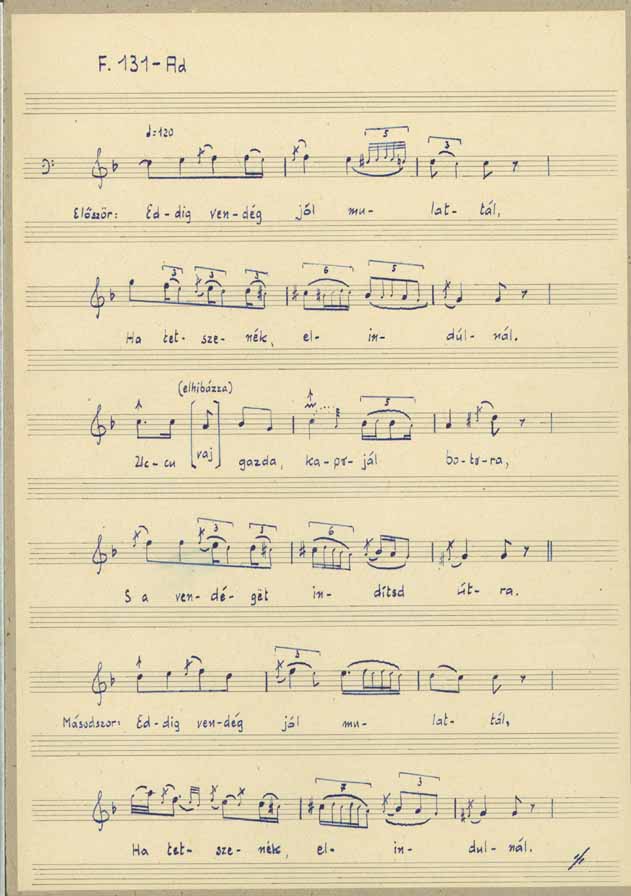 F. 131-Ad
♩=120
5
3
Először: Ed-dig ven-dég jól mu- lat- tál,
3 3 3 6 5
Ha tet- sze- nék, el- in- dúl- nál.
(elhibázza)
5
Uc-cu [vaj] gazda, ka-pj-jál bo-to-ra,
3 3 6
S a ven-dé- gët in- dítsd út- ra.
3
Másodszor: Ed-dig ven-dég jól mu- lat- tál,
7 3
Ha tet- sze- nék, el- in- dul- nál.